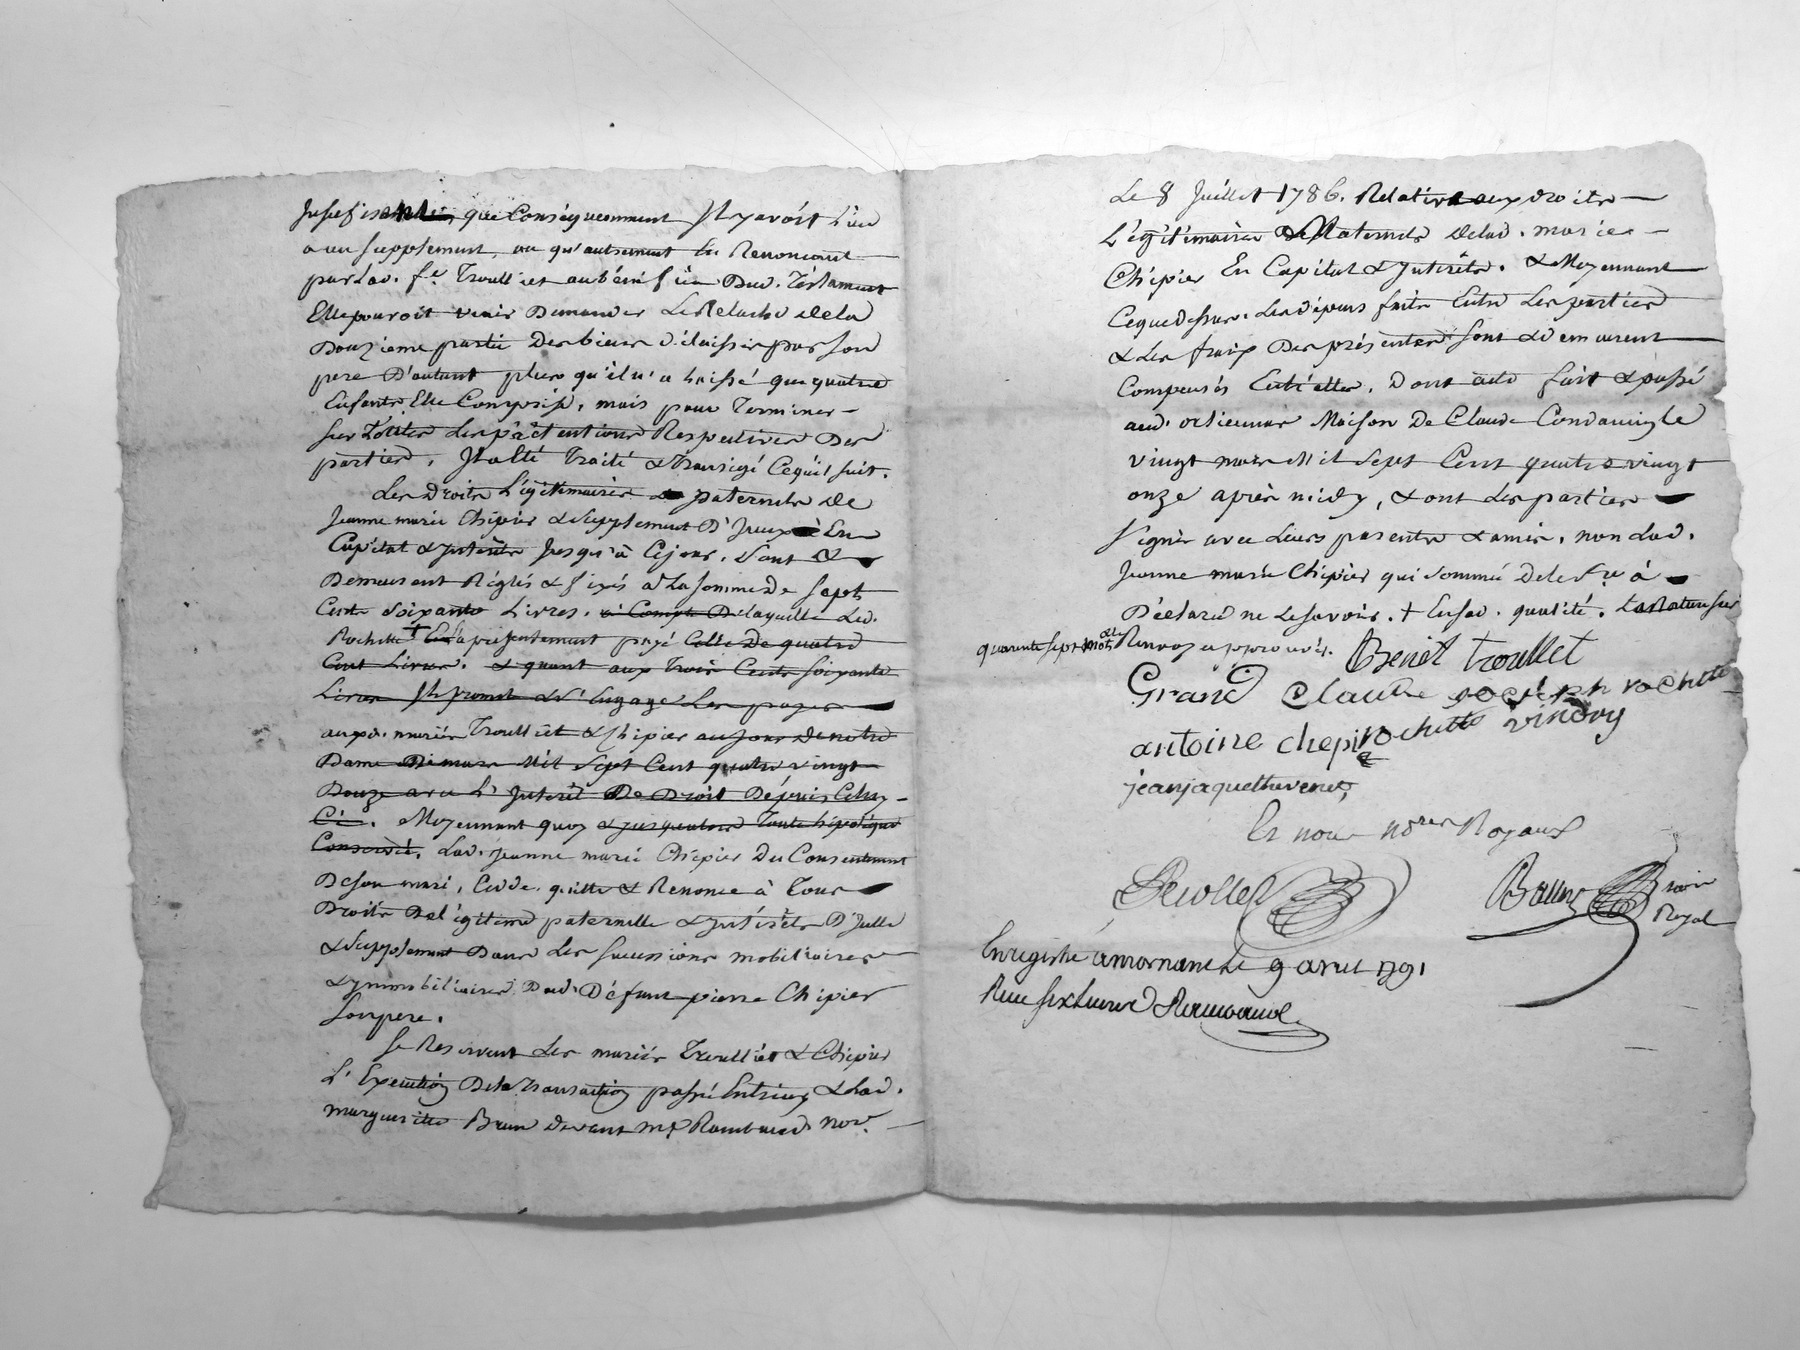 que Conséquemment Il y avoit Lieu
a un supplement, ou qu'autrement En Renoncant
par Lad. fe. Troulliet au bénéfice Dud. Testament
Elle pouroit venir Demander Le Relache dela
Douzieme partie Des biens délaissés par son
pere D'autant plus qu'il n'a laissé que quatre
Enfants Elle Comprise, mais pour Terminer
sur Toutes Les prétentions Respectives Des
parties, Il a Eté Traité & Transigé Cequi suit.
Les Droits Légitimaires paternels de
Jeanne marie Chipier & supplement D'Iceux En
Capital & Interêts Jusqu'à Cejour, sont &
Demeurent Réglés & fixés a La somme de sept
Cents soixante Livres. a Compte De laquelle Led.
Rochette + a présentement payé Celle De quatre
Cent Livres. & quant aux trois Cents soixante
Livres Il promet & s'Engage Les payer
auxd. mariés Troulliet & Chipier au Jour De notre
Dame De mars Mil sept Cent quatre vingt
Douze avec L'Interêt De Droit Dépuis Celuy-
Ci. Moyennant quoy & jusqu'alors Toute hipotéque
Conservée. Lad. Jeanne marie Chipier Du Consentement
De son mari, Cedde quitte & Renonce à Tous
Droits De légitime paternelle & Intérêts D'Icelle
& supplement Dans Les successions mobiliaires
& ymmobiliaires Dud. Défunt pierre Chipier
son pere.
se Reservent Les mariés Troulliet & Chipier
L'Execution Dela Transaction passée Entr'eux & Lad.
marguerite Brun devant me. Rambaud nore.
Le 8 Juillet 1786. Relative aux droits
Légitimaires & Maternels delad. marie
Chipier En Capital & Interêts. & Moyennant
Cequedessus. Les dépens faits Entre Les parties
& Les fraix Des présentes sont & demeurent
Compensés Entr'elles. Dont acte fait & passé
aud. Maison De Claude Condamin Le
vingt mars Mil sept Cent quatre vingt
onze après midy, & ont Les parties
signé avec Leurs parents & amis, non Lad.
Jeanne marie Chipier qui sommée De Le fre. à
Déclaré ne Le savoir. + Ensad. qualité. La Rature sur
quarante sept mots & Le Renvoy approuvés. Benoît troulliet
Grand Claude rochette
antoine chepie rochette vindry
jean jaque thevenet
Et nous nores Royaux
Baune noire
Royal
Enregistré a mornant Le 9 avril 1791